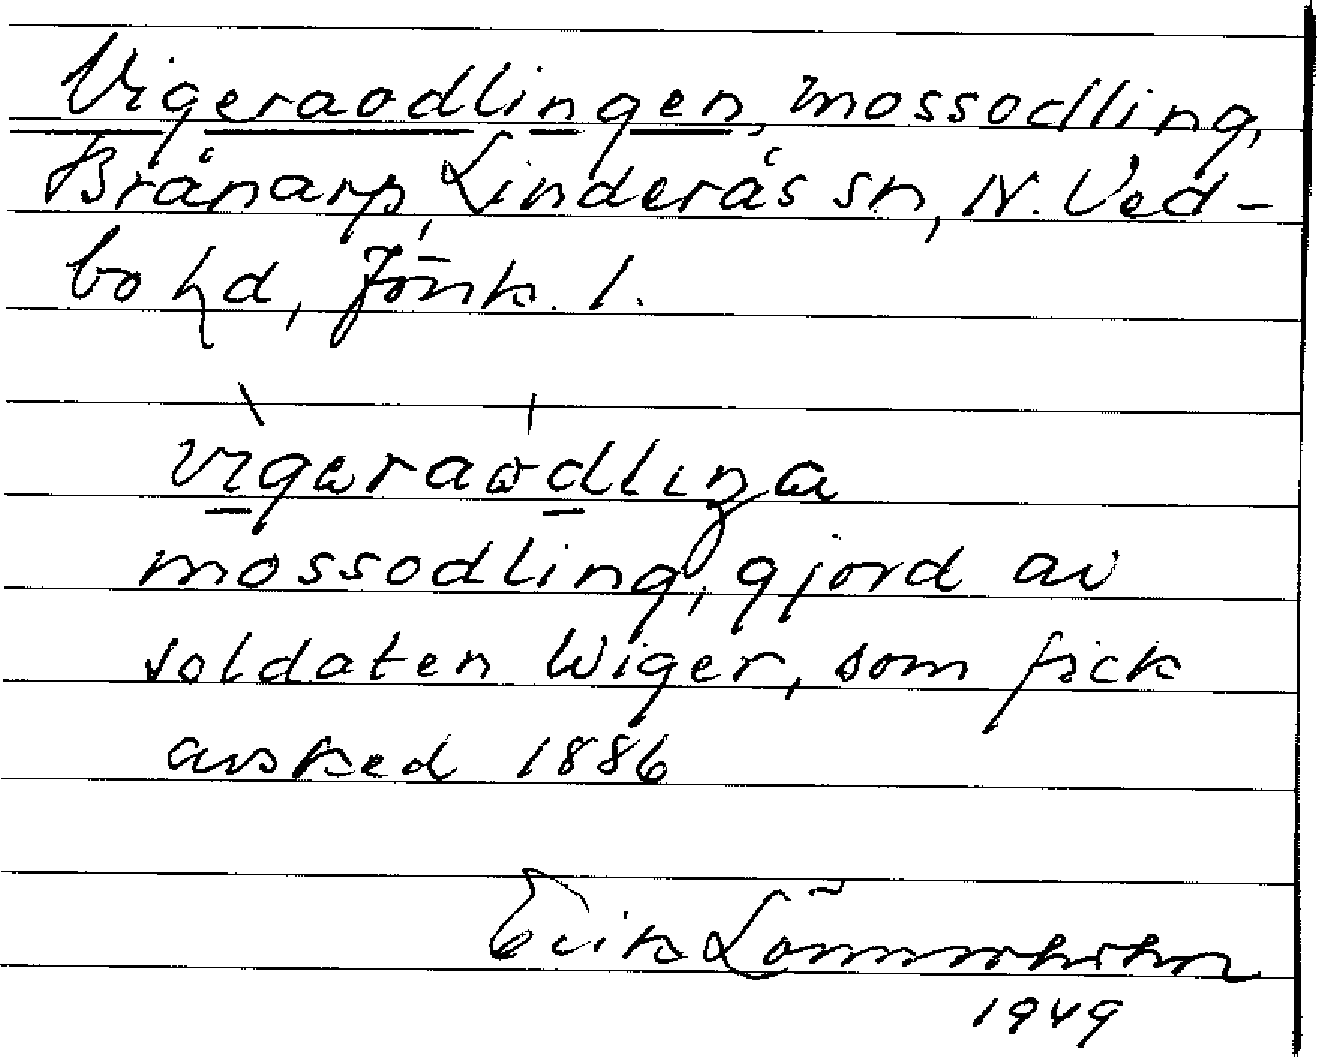 Vigeraodlingen, mossodling,
Brånarp, Linderås sn, N. Ved-
bo hd, Jönk. l.
vìgɷraɷ̍dlıŋɷ
mossodling, gjord av
soldaten Wiger, som fick
avsked 1886
Erik Lönnerholm
1949